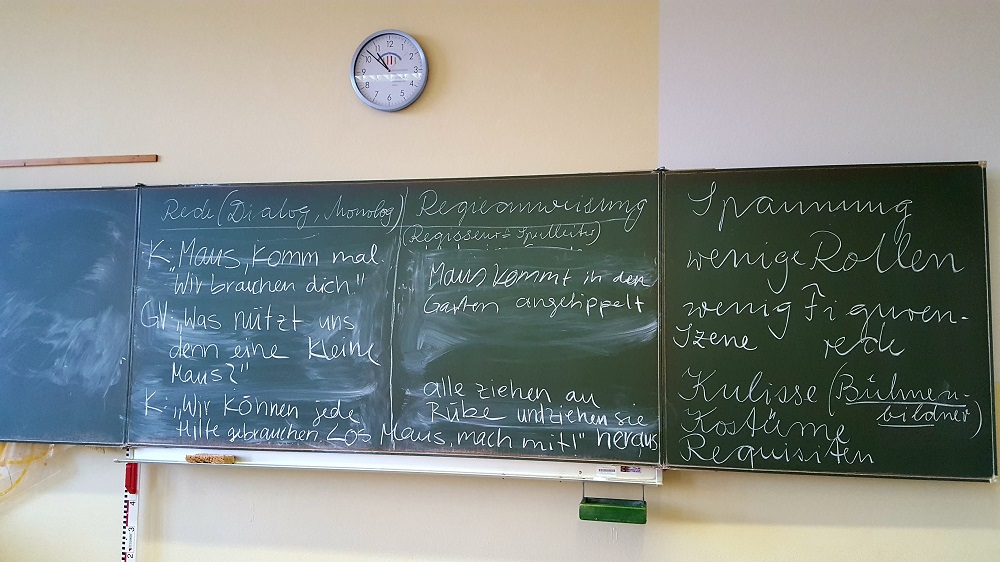 Rede (Dialog, Monolog)
K: „Maus, komm mal.
Wir brauchen dich"
GV: „Was nützt uns
denn eine kleine
Maus?"
K: „Wir können jede
Hilfe gebrauchen. Los Maus, mach mit!"
Regieanweisung
(Regisseur = Spielleiter)
Maus kommt in den
Garten angetippelt
alle ziehen an
Rübe und ziehen sie
heraus
Spannung
wenige Rollen
wenig Figuren-
rede
Szene
Kulisse (Bühnen-
bildner)
Kostüme
Requisiten
12
1
2
3
4
5
6
7
8
9
10
11
4
3
2